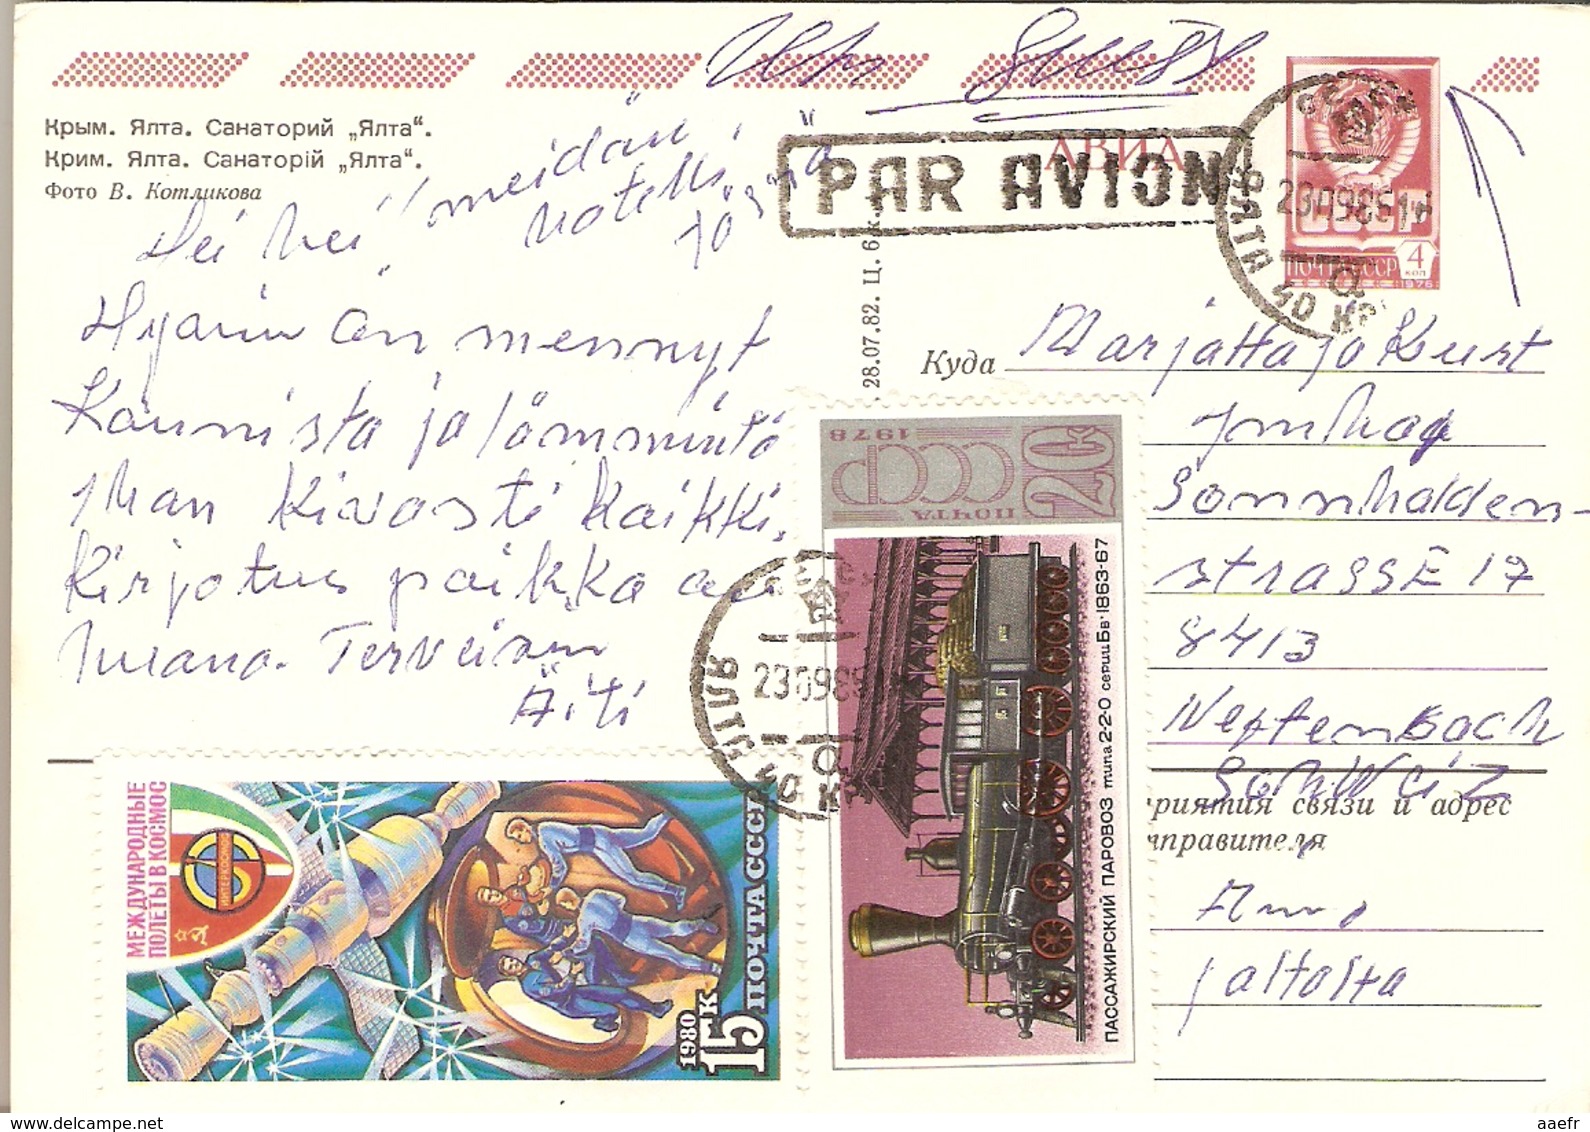 Suisse
Крым. Ялта. Санаторий „Ялта“.
Крим. Ялта. Санаторій „Ялта“.
Фото В. Котликова
АВИА
PAR AVION
meidän
hotelli
Hei hei
Hyvin on mennyt
Kaunista ja lämmintä
ihan kivasti kaikki.
Kirjotus paikka
huano. Terveisin
Äiti
28.07.82. Ц. 6 к.
СССР
ПОЧТА СССР 4 коп
1976
ЯЛТА
230985
Куда Marjatta ja Kurt
Imhag
Sonnhalden-
strasse 17
8413
Neftenbach
Schweiz
риятия связи и адрес
правителя
Jaltalta
ПОЧТА СССР 1978
20к
ПАССАЖИРСКИЙ ПАРОВОЗ типа 2-2-0 серии Бв·1863-67
ЯЛТА
230985
МЕЖДУНАРОДНЫЕ
ПОЛЕТЫ В КОСМОС
1980
15к ПОЧТА СССР
aaefr